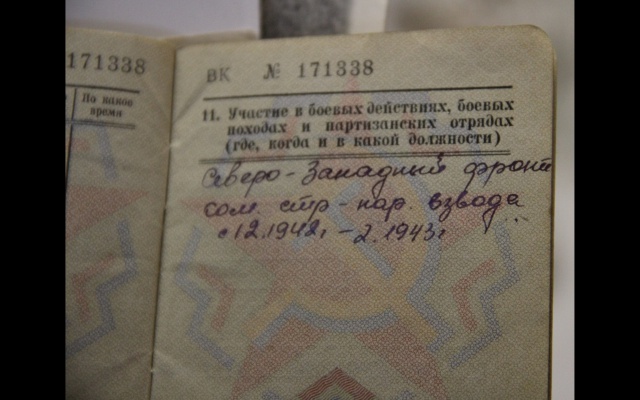 171338
По какое
время
ВК № 171338
11. Участие в боевых действиях, боевых
походах и партизанских отрядах
(где, когда и в какой должности)
Северо-Западный фронт
ком. стр-кар. взвода
с 12.1942г – 2.1943г